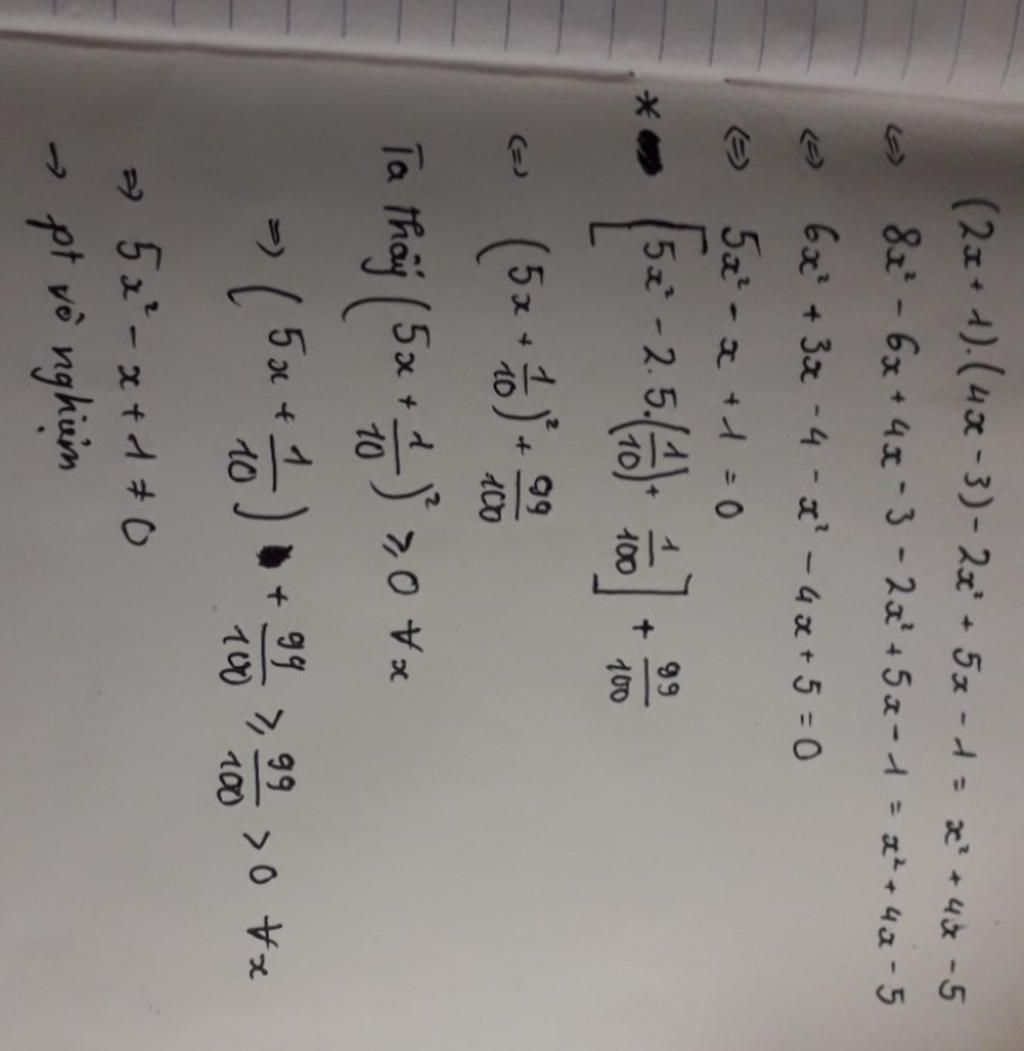 (2x+1).(4x-3) - 2x² + 5x - 1 = x² + 4x - 5
⇔ 8x² - 6x + 4x - 3 - 2x² + 5x - 1 = x² + 4x - 5
⇔ 6x² + 3x - 4 - x² - 4x + 5 = 0
⇔ 5x² - x + 1 = 0
* [5x² - 2.5.(1/10) + 1/100] + 99/100
⇔ (5x + 1/10)² + 99/100
Ta thấy (5x + 1/10)² ≥ 0 ∀x
⇒ (5x + 1/10) + 99/100 ≥ 99/100 > 0 ∀x
⇒ 5x² - x + 1 ≠ 0
→ pt vô nghiệm